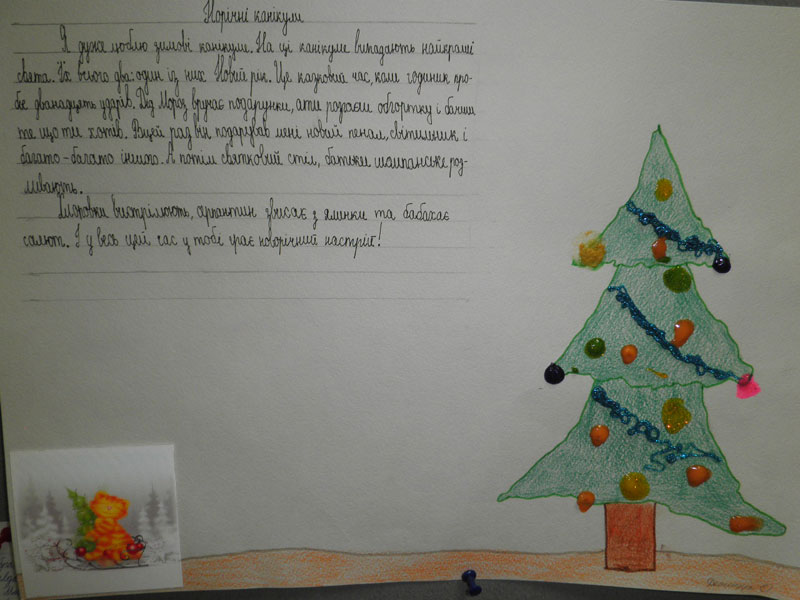 Норічні канікули
Я дуже люблю зимові канікули. На ці канікули випадають найкращі
свята. Їх всього два: один із них Новий рік. Це казковий час, коли годиник про-
бє дванадцять ударів. Дід Мороз вручає подарунки, а ти розриєш обгортку і бачиш
те що ти хотів. В цей рад він подарував мені новий пенал, світильник і
багато-багато іншого. А потім святковий стіл, батьки шампанське роз-
ливають.
Хлоровки вистрілюють, серпантин звисає з ялинки та бабахає
салют. І у весь цей час у тобі грає новорічний настрій!